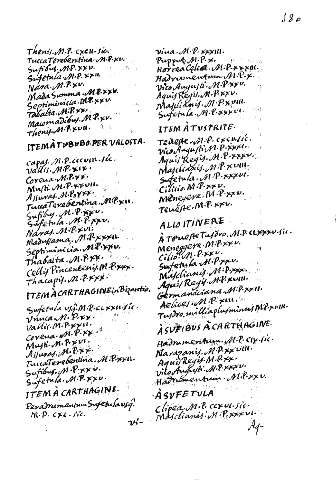 180
Thenis. M.P. CXCII. sic.
Tucca Terebentina. M.P. XV.
Sufibus. M.P. XXV.
Sufetula. M.P. XXV.
Nara. M.P. XV.
Mada Summa. M.P. XXV.
Septiminicia. M.P. XXV.
Tabalta. M.P. XX.
Macomadibus. M.P. XV.
Thenis. M.P. XVII.
ITEM À TUBUBO. PER. VALLOS. TA.
Capas. M.P. CCCVIII. sic.
Vallis. M.P. XIX.
Coreua. M.P. XX.
Musti. M.P. XXVIII.
Assuras. M.P. XXX.
Tucca Terebentina. M.P. XII.
Sufibus. M.P. XXV.
Sufetula. M.P. XXV.
Naras. M.P. XVI.
Septiminicia. M.P. XXV.
Thabalta. M.P. XX.
Cellis Picentinis. M.P. XXX.
Thacapis. M.P. XXX.
ITEM À CARTHAGINE. in Bizantio.
Sufetula usq. M.P. CLXXII. sic
Unuca. M.P. XX.
Vallis. M.P. XXII.
Coreua. M.P. XX.
Musti. M.P. XVI.
Assuras. M.P. XX.
Tucca Terebentina. M.P. XII.
Sufibus. M.P. XXV.
Sufetula. M.P. XXV.
ITEM À CARTHAGINE.
Per Adrumentum Sufetula usq.
M.P. CXC. sic.
Vi-
Vina. M.P. XXXIII.
Putput. M.P. X.
Horrea Celia. M.P. XXXIII.
Hadrumentum. M.P. X.
Vico Augusti. M.P. XXV.
Aquis Regis. M.P. XXV.
Masclianis. M.P. XVIII.
Sufetula. M.P. XXXVI.
ITEM À TUSPRITE.
Vico Augusti. M.P. XXXI.
Aquis Regis. M.P. XXXV.
Masclianis. M.P. XVIII.
Sufetula. M.P. XXXVI.
Cillio. M.P. XXV.
Menegere. M.P. XXV.
Teueste. M.P. XXV.
ALIO ITINERE
À Teueste Tusdro. M.P. CLXXXV. sic.
Meneggere. M.P. XXV.
Cilio. M.P. XXV.
Sufetula. M.P. XXV.
Masclianis. M.P. XXXVI.
Aquis Regis. M.P. XVIII.
Germaniciana. M.P. XXIIII.
Aelices. M.P. XVI.
Tusdro. millia plus minus M.P. XVIII.
À SUFIBUS À CARTHAGINE.
Hadrumentum. M.P. CIX. sic.
Maraganis. M.P. XXVIII.
Aquis Regis. M.P. XX.
Vico Augusti. M.P. XXXV.
Hadrumentum. M.P. XXV.
À SUFETULA
Clipea. M.P. CCXVI. sic.
Masclianis. M.P. XXXVI.
Aq-